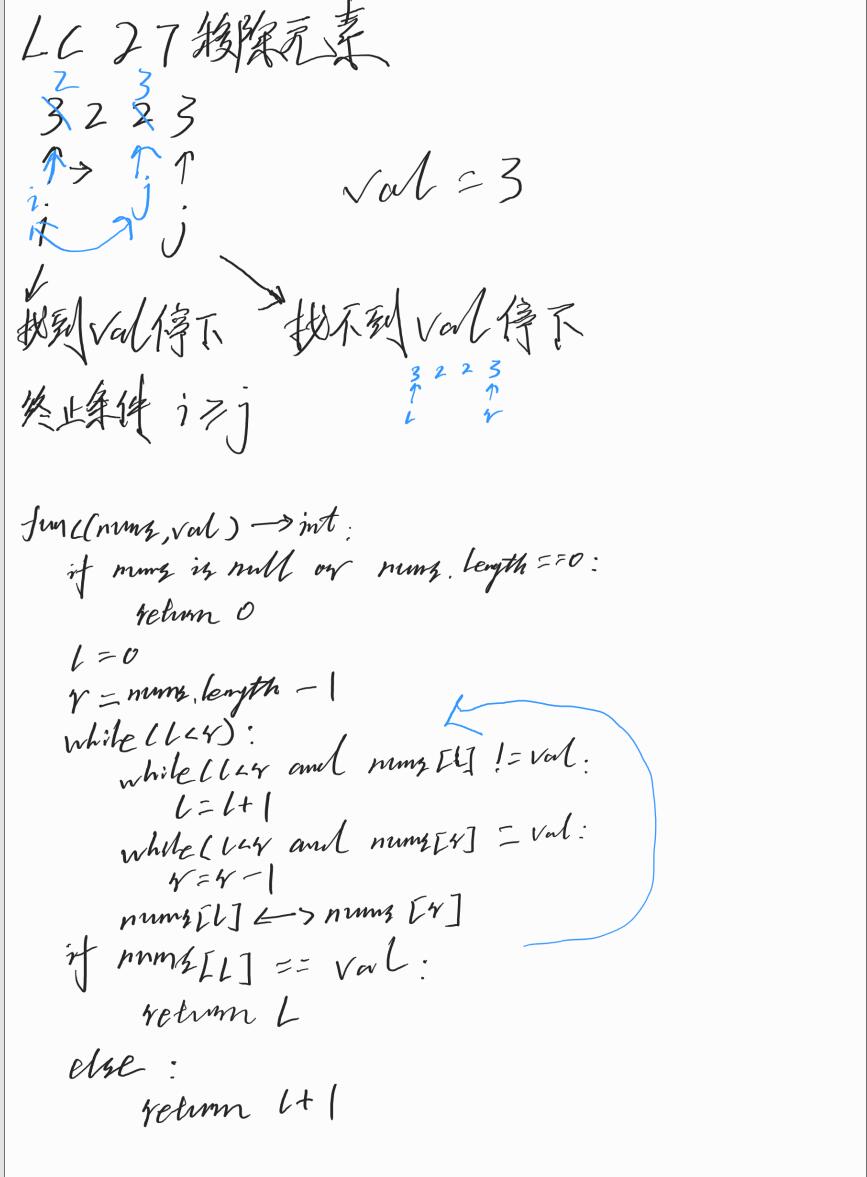 LC 27 移除元素
2 3
3 2 2 3
i j
i j
val = 3
找到val停下 找不到val停下
3 2 2 3
L r
终止条件 i ≥ j
func(nums,val) → int:
if nums is null or nums.length ==0:
return 0
L = 0
r = nums.length - 1
while(L<r):
while(L<r and nums[L] != val:
L = L+1
while(L<r and nums[r] = val:
r = r - 1
nums[L] <-> nums[r]
if nums[L] == val:
return L
else :
return L+1